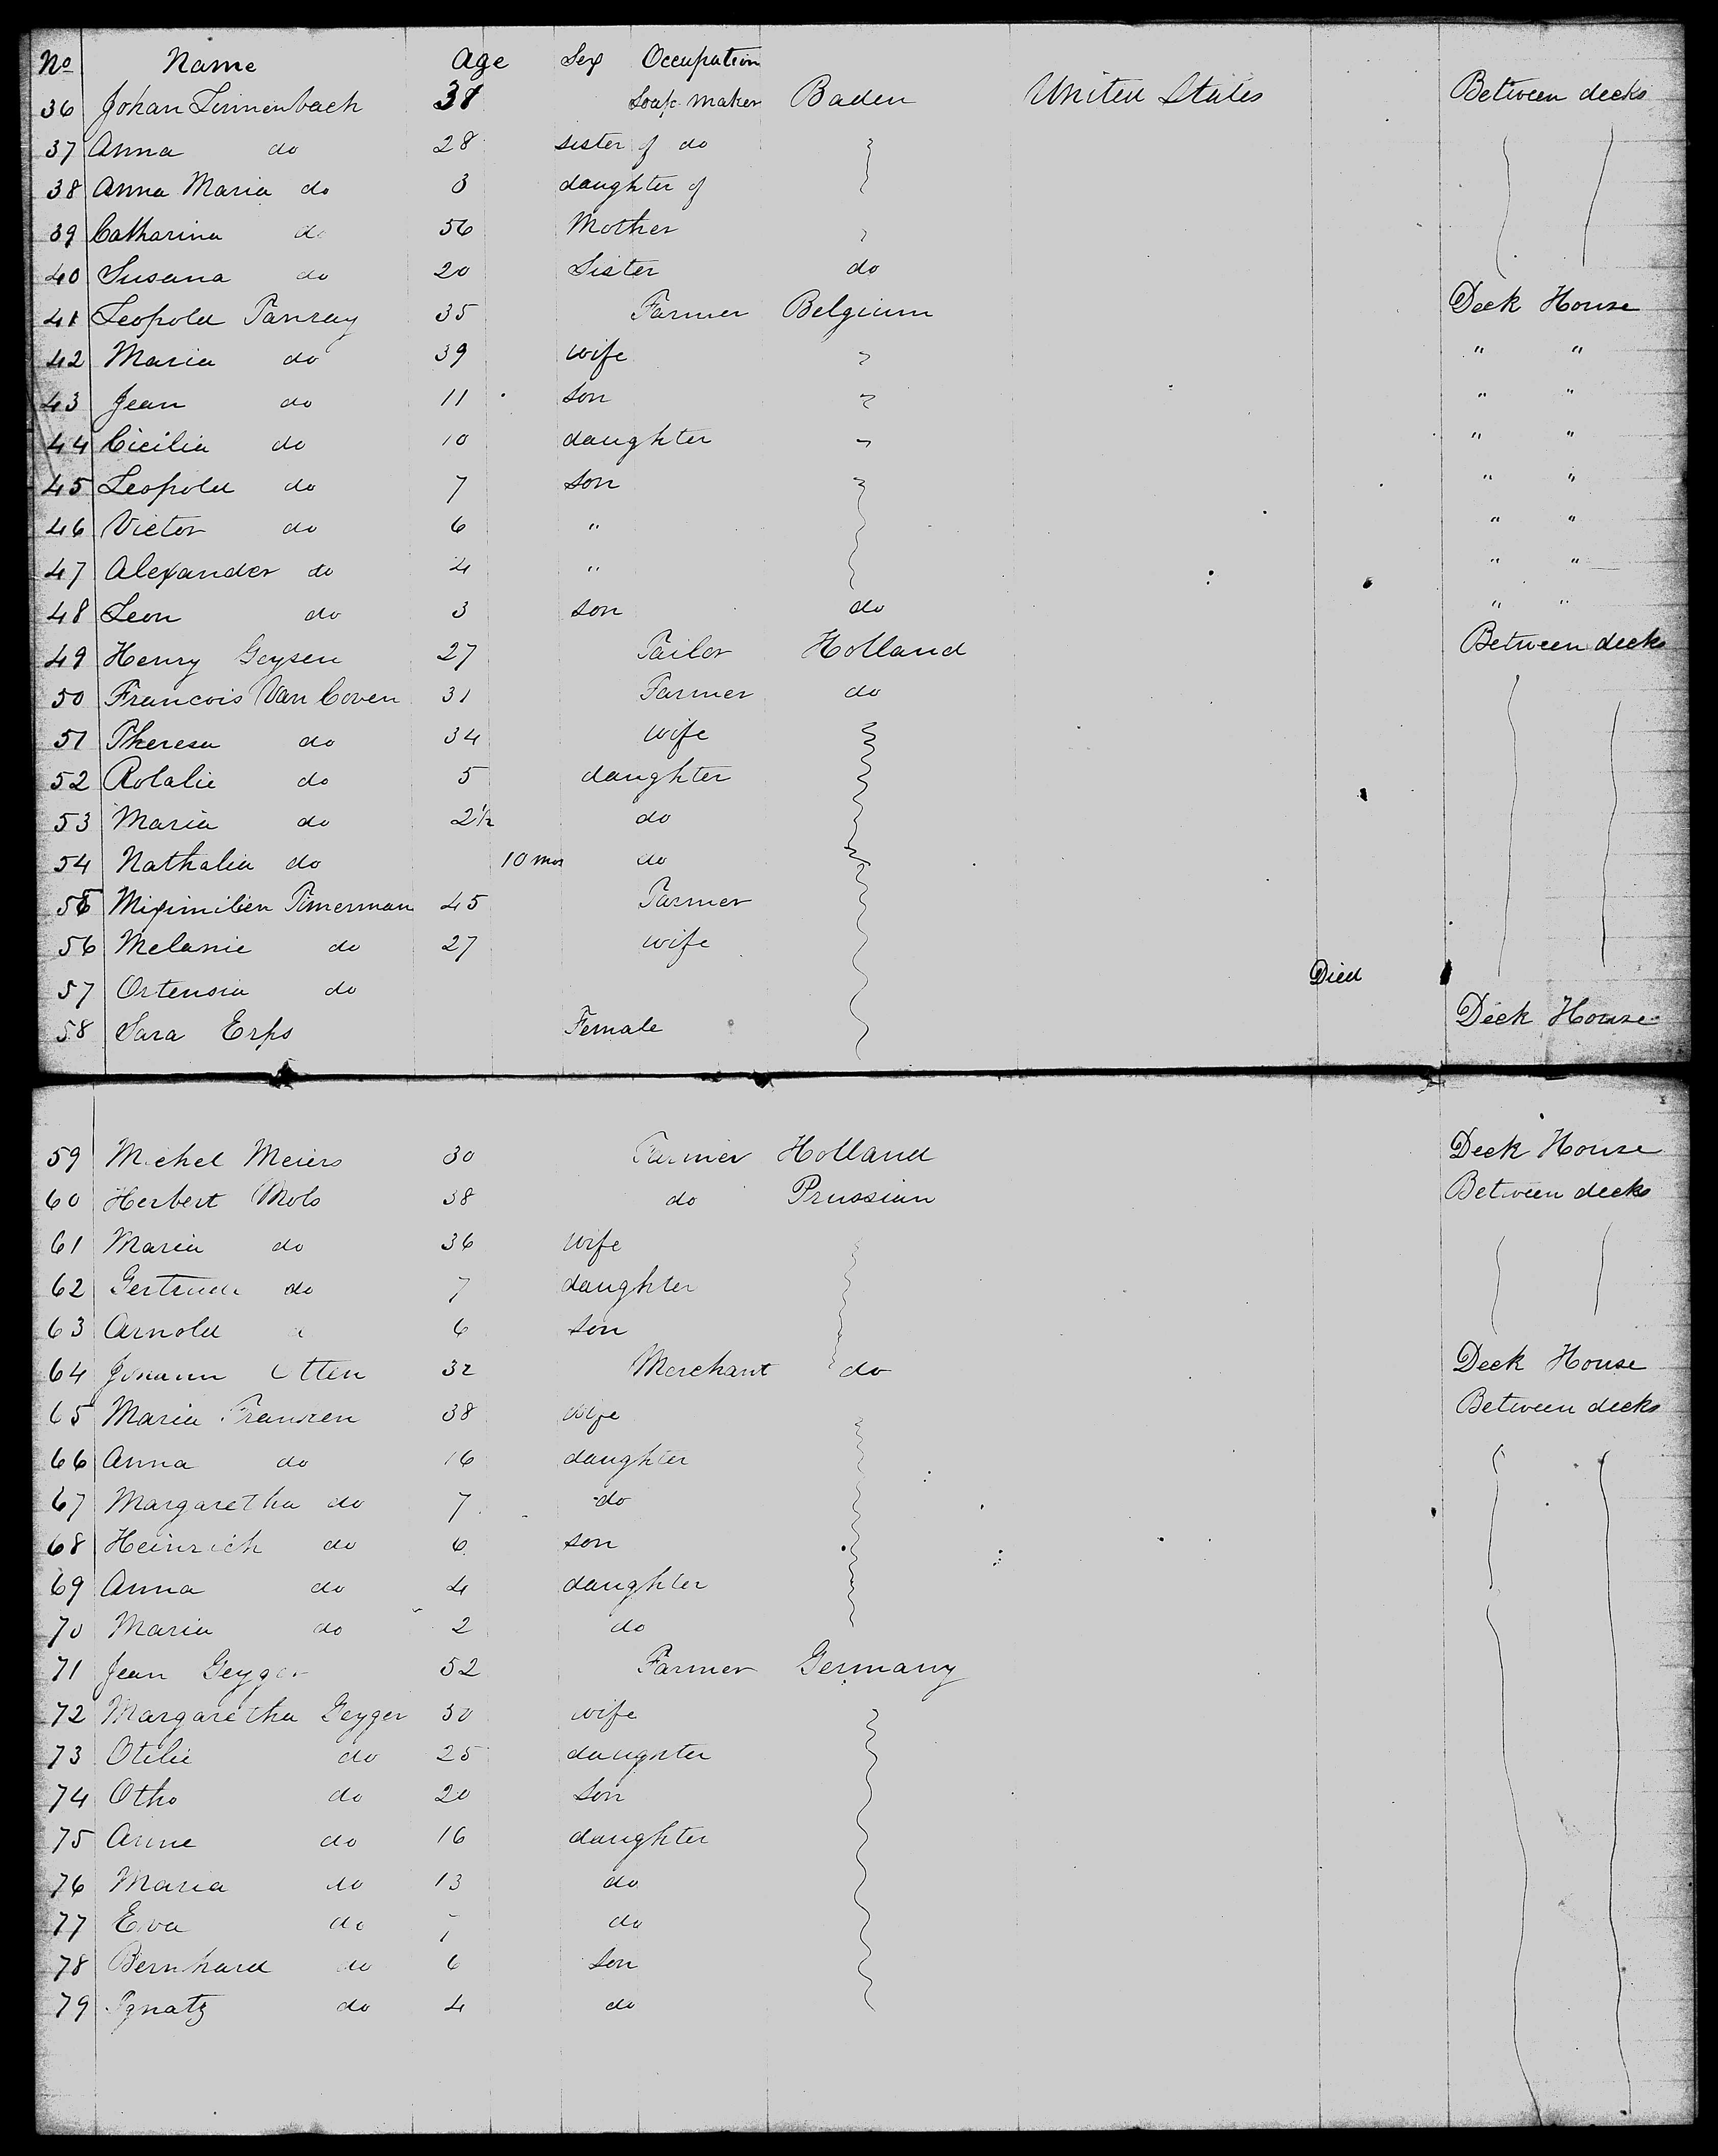 No Name Age Sex Occupation
36 Johan Linnenbach 38 Soap maker Baden United States Between decks
37 Anna do 28 sister of do
38 Anna Maria do 3 daughter of
39 Catharina do 56 Mother
40 Susana do 20 Sister do
41 Leopold Tanray 35 Farmer Belgium Deck House
42 Maria do 39 wife " "
43 Jean do 11 son " "
44 Cicilia do 10 daughter " "
45 Leopold do 7 son " "
46 Victor do 6 " " "
47 Alexander do 4 " " "
48 Leon do 3 son do " "
49 Henry Geysen 27 Tailor Holland Between decks
50 Francois Van Coven 31 Farmer do
51 Theresa do 34 wife
52 Rolalie do 5 daughter
53 Maria do 2½ do
54 Nathalia do 10 mos do
55 Miximilien Timerman 45 Farmer
56 Melanie do 27 wife
57 Ortensia do Died
58 Sara Erps Female Deck House
59 Michel Meiers 30 Farmer Holland Deck House
60 Herbert Mols 38 do Prussian Between decks
61 Maria do 36 wife
62 Gertrude do 7 daughter
63 Arnold 6 son
64 Johann Otten 32 Merchant do Deck House
65 Maria Franzen 38 wife Between decks
66 Anna do 16 daughter
67 Margaretha do 7 do
68 Heinrich do 6 son
69 Anna do 4 daughter
70 Maria do 2 do
71 Jean Geyger 52 Farmer Germany
72 Margaretha Geyger 50 wife
73 Otilie do 25 daughter
74 Otho do 20 son
75 Anne do 16 daughter
76 Maria do 13 do
77 Eva do 7 do
78 Bernhard do 6 son
79 Ignatz do 4 do